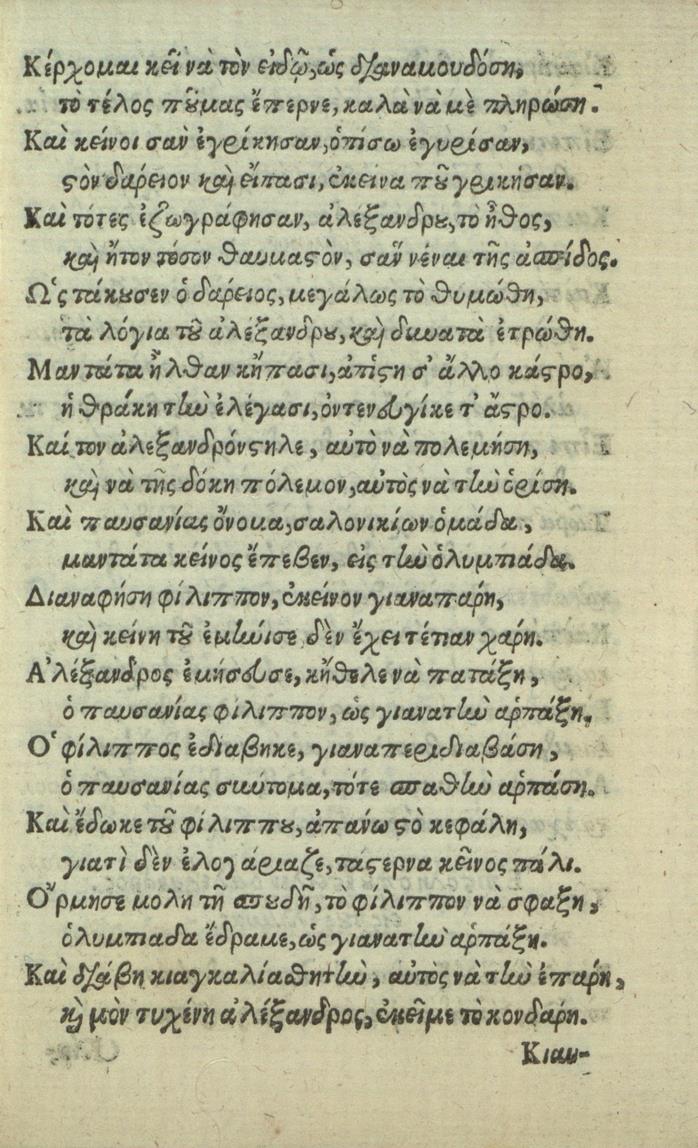 Κέρχομαι κεῖ νὰ τὸν εἰδῶ, ὡς διὰ ναμουδόση,
τὸ τέλος ποῦμας ἔπερνε, καλὰ νὰ μὲ πληρώση.
Καὶ κείνοι σαν ἐγρίκησαν, ὀπίσω ἐγυρίσαν,
στὸν δαρεῖον καὶ εἴπασι, ἐκεῖνα ποῦ γρικήσαν.
Καὶ τότες ἐζωγράφησαν, ἀλεξάνδρου, τὸ ἦθος,
καὶ ἤτον τόσον θαυμαστὸν, σὰν νέναι τῆς ἀσπίδος.
Ὡς τάκουσεν ὁ δαρεῖος, μεγάλως τὸ θυμώθη,
τὰ λόγια τοῦ ἀλεξάνδρου, καὶ δυνατὰ ἐτρώθη.
Μαντάτα ἦλθαν κἤπασι, ἀπίστη σ' ἄλλο κάστρο,
ἡ θράκη τὴν ἐλέγασι, ὀντεν εὐγίκε τ' ἄστρο.
Καί τον ἀλεξανδρόνστηλε, αὐτὸ νὰ πολεμήση,
καὶ νὰ τῆς δόκη πόλεμον, αὐτὸς νὰ τὴν ὁρίση.
Καὶ παυσανίας ὄνομα, σαλονικίων ὁμάδα,
μαντάτα κείνος ἔπεβεν, εἰς τὴν ὀλυμπιάδα.
Διαναφήση φίλιππον, ἐκείνον γιαναπάρη,
καὶ κείνη τοῦ ἐμήνισε δὲν ἔχει τέτιαν χάρη.
Ἀλέξανδρος ἐμήσευσε, κἤθελε νὰ πατάξη,
ὁ παυσανίας φίλιππον, ὡς γιανατὴν ἁρπάξη.
Ὁ φίλιππος ἐδιάβηκε, γιαναπεριδιαβάση,
ὁ παυσανίας σκύτομα, τότε σπαθὴν ἁρπάση.
Καὶ ἔδωκε τοῦ φίλιππου, ἀπάνω στὸ κεφάλη,
γιατὶ δὲν ἐλογάριαζε, τάστερνα κεῖνος πάλι.
Ὅρμησε μολη τῆ σπουδῆ, τὸ φίλιππον νὰ σφαξη,
ὀλυμπιαδα ἔδραμε, ὡς γιανατὴν ἁρπάξη.
Καὶ διάβη κιαγκαλιάθητὴν, αὐτὸς νὰ τὴν ἐπάρη,
κὶ μὸν τυχένη ἀλέξανδρος, ἐκεῖμε τὸ κονδάρη.
Κιαυ-